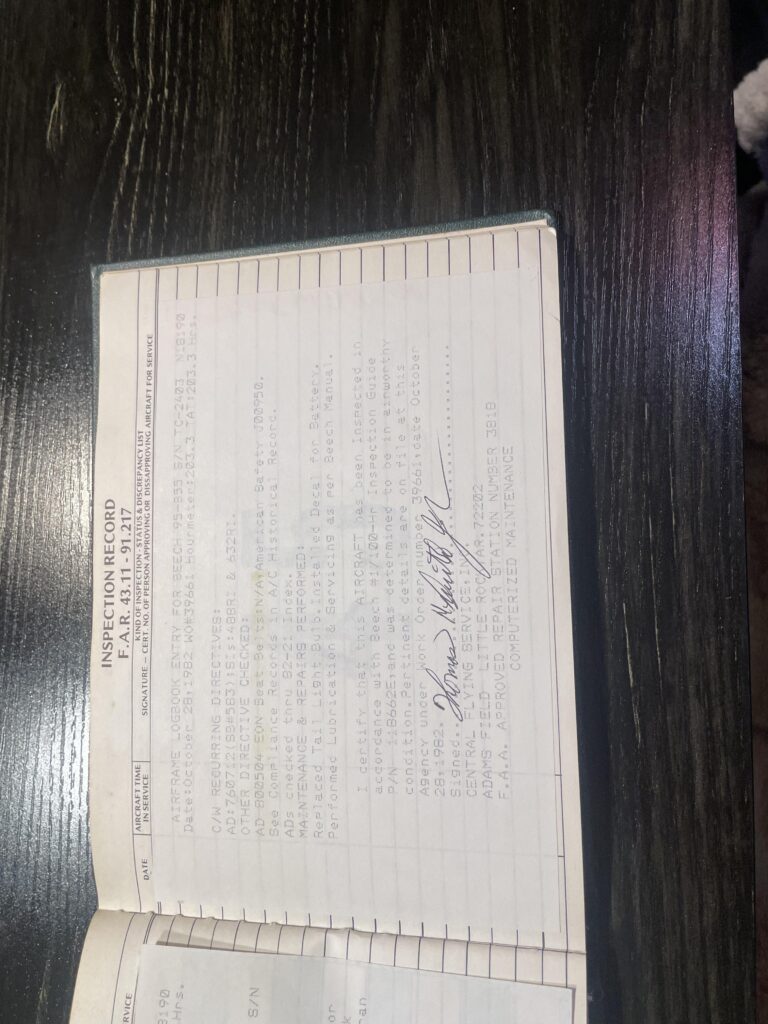 INSPECTION RECORD
F.A.R. 43.11 - 91.217
DATE
AIRCRAFT TIME
IN SERVICE
KIND OF INSPECTION - STATUS & DISCREPANCY LIST
SIGNATURE — CERT. NO. OF PERSON APPROVING OR DISSAPPROVING AIRCRAFT FOR SERVICE
AIRFRAME LOGBOOK ENTRY FOR BEECH 95-B55 S/N TC-2403 N-8190
Date:October 28,1982 WO#39661 Hourmeter:203.3 TAT:203.3 Hrs.
C/W RECURRING DIRECTIVES:
AD:760712(BB#583);SI's:488RI & 632RI.
OTHER DIRECTIVE CHECKED:
AD 800504 EON Seat Belts:N/A,American Safety 500950.
See Compliance Records in A/C Historical Record.
ADs checked thru 82-21 Index.
MAINTENANCE & REPAIRS PERFORMED:
Replaced Tail Light Bulb.Installed Decal for Battery.
Performed Lubrication & Servicing as per Beech Manual.
I certify that this AIRCRAFT has been Inspected in
accordance with Beech #1/100-Hr Inspection Guide
P/N 118662E;and was determined to be in airworthy
condition.Pertinent details are on file at this
Agency under Work Ordernumber 39661;date October
28,1982.
Signed..Thomas
CENTRAL FLYING SERVICE,INC.
ADAMS FIELD LITTLE ROCK,AR.72202
F.A.A. APPROVED REPAIR STATION NUMBER 3818
COMPUTERIZED MAINTENANCE
RVICE
8190
Hrs.
S/N
or
k
an